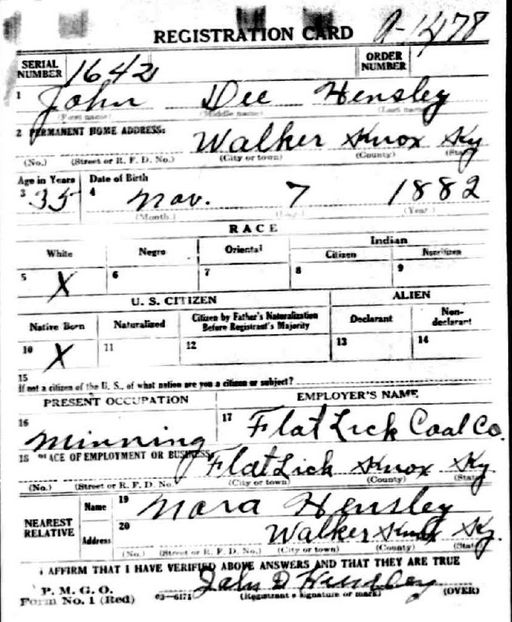 REGISTRATION CARD A-1478
SERIAL NUMBER 1642 ORDER NUMBER
1 John Dee Hensley
(First name) (Middle name) (Last name)
2 PERMANENT HOME ADDRESS:
Walker Knox Ky
(No.) (Street or R. F. D. No.) (City or town) (County) (State)
Age in Years Date of Birth
3 35 4 Nov. 7 1882
(Month.) (Day.) (Year.)
RACE
White Negro Oriental Indian
Citizen Noncitizen
5 X 6 7 8 9
U. S. CITIZEN ALIEN
Native Born Naturalized Citizen by Father's Naturalization Before Registrant's Majority Declarant Non-declarant
10 X 11 12 13 14
15
If not a citizen of the U. S., of what nation are you a citizen or subject?
PRESENT OCCUPATION EMPLOYER'S NAME
16 Minning 17 Flat Lick Coal Co.
18 PLACE OF EMPLOYMENT OR BUSINESS:
Flat Lick Knox Ky
(No.) (Street or R. F. D. No.) (City or town) (County) (State)
NEAREST RELATIVE Name 19 Nora Hensley
Address 20 Walker Knox Ky.
(No.) (Street or R. F. D. No.) (City or town) (County) (State)
I AFFIRM THAT I HAVE VERIFIED ABOVE ANSWERS AND THAT THEY ARE TRUE
P. M. G. O.
Form No. 1 (Red) 03—6171 John D Hensley
(Registrant's signature or mark) (OVER)